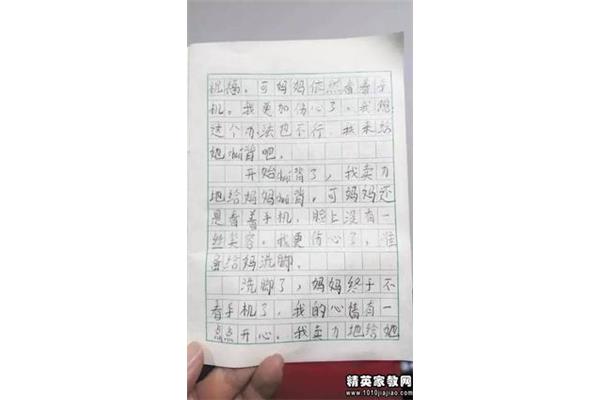 机摇。可妈妈依然看着手
机。我更加伤心了。我想
这个办法也不行,我来给
她捶背吧。
开始捶背了,我卖力
地给妈妈捶背,可妈妈还
是看着手机,脸上没有一
丝笑容。我更伤心了,
给妈洗脚。
洗脚了,妈妈终于不
看手机了,我的心情有一
点点开心。我卖力地给她
精英家教网
www.1010jiajiao.com